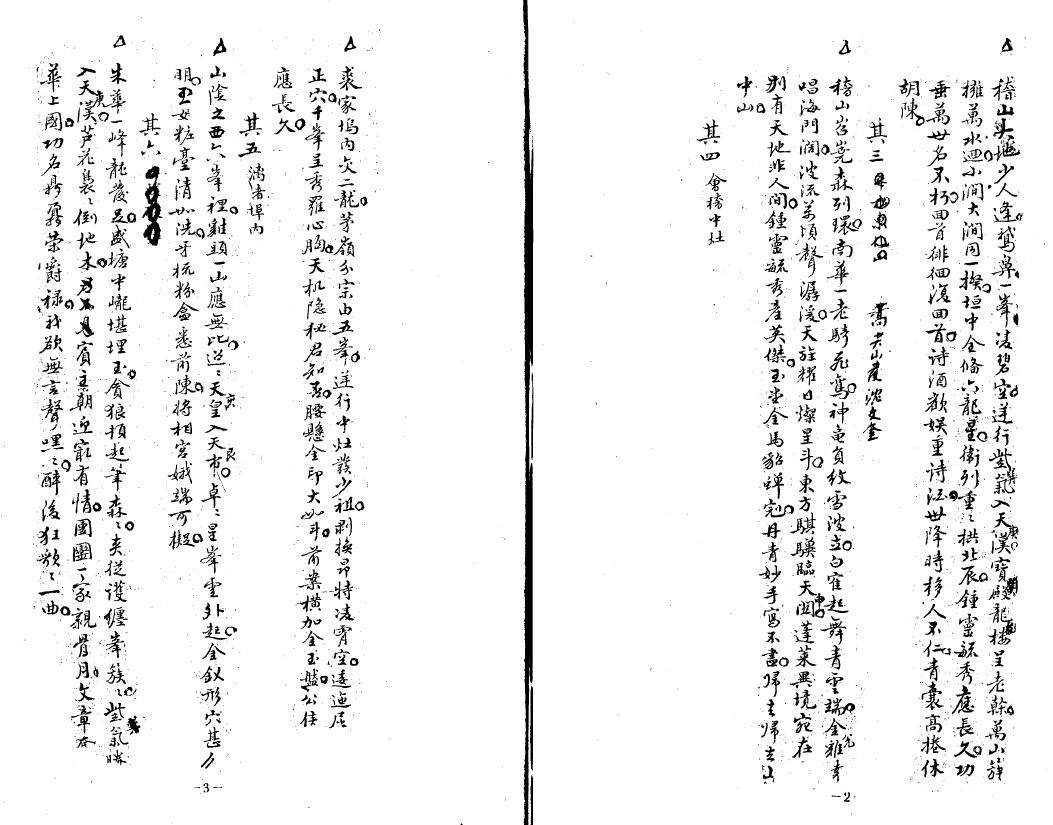 稽山吳地少人逢鵞鼻一峯凌碧空逆行紫氣入天漢寶殿龍樓呈老榦萬山簇
擁萬水迴小澗大澗同一揆垣中全備六龍星衛列重〻拱北辰鍾靈毓秀應長久功
垂萬世名不朽回首徘徊復回首詩酒歡娛重詩江世降時移人不仁青囊高捲休
胡陳
其三
稽山岧嶤森列環南華一老騎飛鸞神龜負紋雪波立白雀起舞青雲端金雞
唱海門闊波流萬頃聲潺湲天旌耀日燦星斗東方騏驥臨天閣蓬萊異境宛在
別有天地非人間鍾靈毓秀產英傑玉堂金馬貂蟬冠丹青妙手寫不盡歸去歸去山
中山
其四 會稽中灶
裘家塢內文二龍茅嶺分宗由五峯逆行中灶發少祖剝換昂特凌霄空逶迤居
正穴千峯呈秀羅心胸天机隱秘君知否腰懸金印大如斗前案橫加金玉盤公侯
應長久
其五 埠內
山陰之西六峯裡雞頭一山應無比迢〻天皇入天市卓〻星峯雲外起金釵形穴甚分
明玉女粧臺清如洗牙梳粉盒悉前陳將相宮娥端可擬
其六
朱華一峰龍發足盛塘中巃堪埋玉貪狼頓起筆森〻夾從護纏峯簇〻紫氣騰
入天漢芦花裊〻倒地木賓主朝迎最有情團團一家親骨月文章夲
華上國功名鼎鼐榮爵祿我欲無言聲嘿〻醉後狂歌〻一曲
-3-
-2-